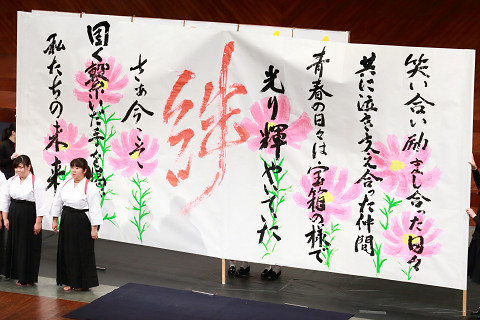 笑い合い励まし合った日々
共に泣き支え合った仲間
青春の日々は宝箱の様で
光り輝やいていた
絆
さあ今こそ
固く繋いだ手を
私たちの未来